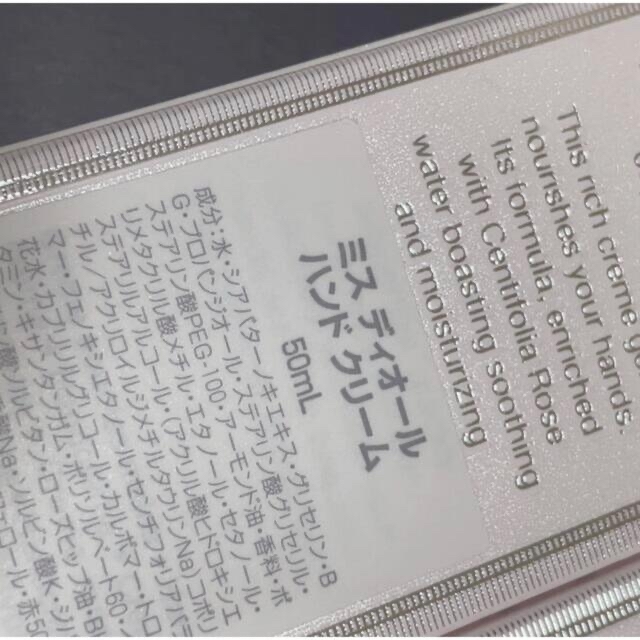 This rich creme g
nourishes your hands.
Its formula, enriched
with Centifolia Rose
water boasting soothing
and moisturizing
ミス ディオール
ハンド クリーム
50mL
成分：水・シアバターノキエキス・グリセリン・B
G・プロパンジオール・ステアリン酸グリセリル・
ステアリン酸PEG-100・アーモンド油・香料・ポ
リメタクリル酸メチル・エタノール・セタノール・
ステアリルアルコール・（アクリル酸ヒドロキシエ
チル/アクリロイルジメチルタウリンNa）コポリ
マー・フェノキシエタノール・センチフォリアバラ
花水・カプリリルグリコール・カルボマー・トロ
タミン・キサンタンガム・ポリソルベート60・
酸ソルビタン・ローズヒップ油・B
酸Na・ソルビン酸K・シリ
ロール・赤50